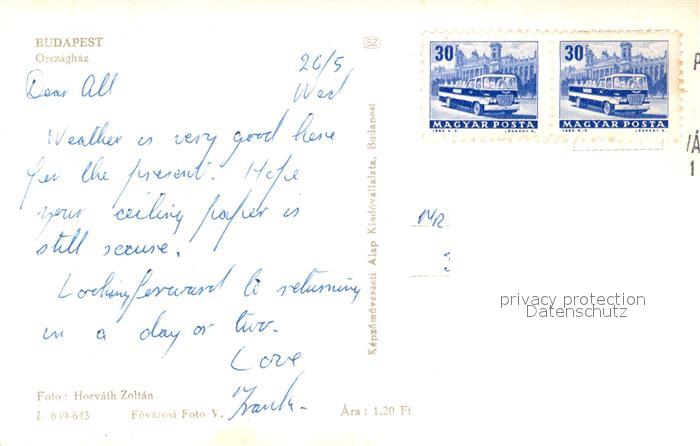 BUDAPEST
Országház
SZ
26/5
Dear All
Wed
Weather is very good here
for the present. Hope
your ceiling paper is
still secure.
Looking forward to returning
in a day or two.
Love
Frank.
Foto: Horváth Zoltán
I. 649-643 Fővárosi Foto V. Ára: 1.20 Ft
Képzőművészeti Alap Kiadóvállalata, Budapest
30f
MAGYAR POSTA
30f
MAGYAR POSTA
privacy protection
Datenschutz